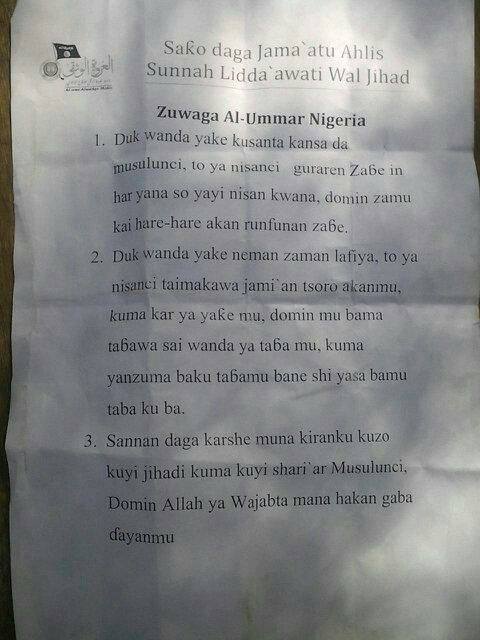 العروة الوثقى
Saƙo daga Jama`atu Ahlis
Sunnah Lidda`awati Wal Jihad
Zuwaga Al-Ummar Nigeria
1. Duk wanda yake kusanta kansa da
musulunci, to ya nisanci guraren Zaɓe in
har yana so yayi nisan kwana, domin zamu
kai hare-hare akan runfunan zaɓe.
2. Duk wanda yake neman zaman lafiya, to ya
nisanci taimakawa jami`an tsoro akanmu,
kuma kar ya yaƙe mu, domin mu bama
taɓawa sai wanda ya taɓa mu, kuma
yanzuma baku taɓamu bane shi yasa bamu
taba ku ba.
3. Sannan daga karshe muna kiranku kuzo
kuyi jihadi kuma kuyi shari`ar Musulunci,
Domin Allah ya Wajabta mana hakan gaba
ɗayanmu